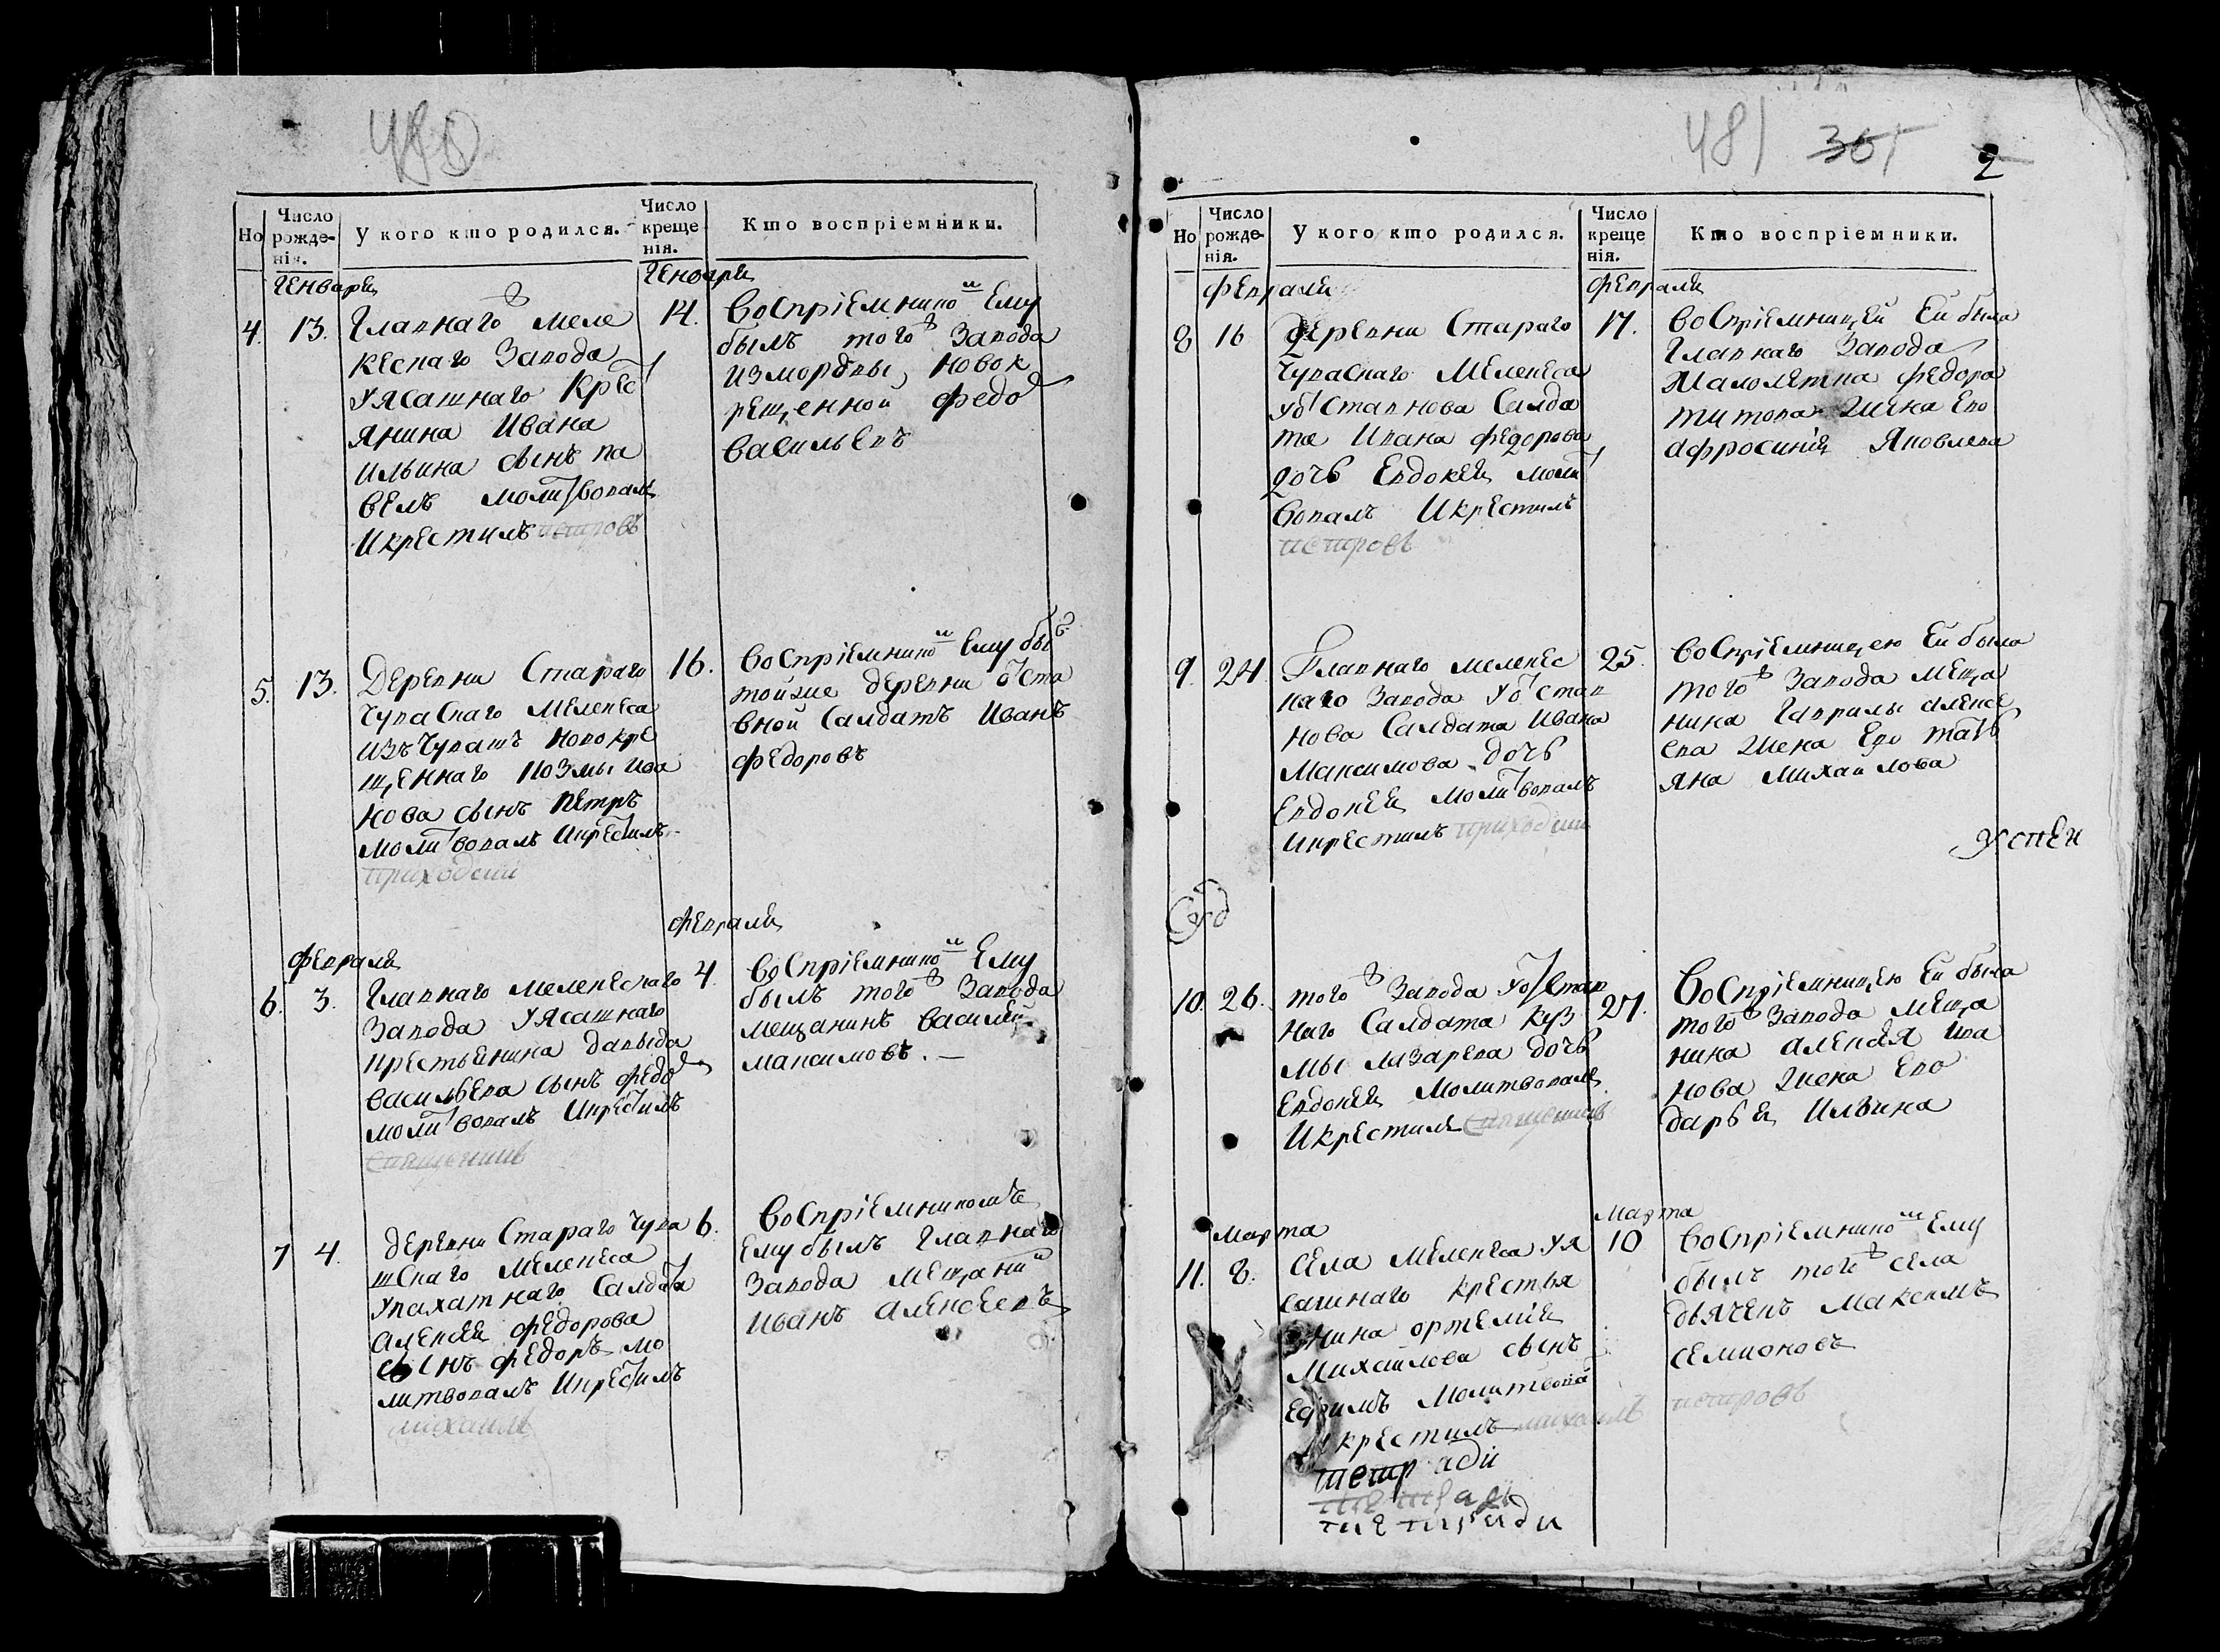 480
Но
Число рожде-нія.
У кого кто родился.
Число креще нія.
Кто воспріемники.
Генваря
Генваря
4. 13.
Главнаго меле
кескаго Завода
Уясашнаго Крес
янина Ивана
Ильина сынъ па
велъ молитвовалъ
Икрестилъ петровъ
14.
Воспріемнико м Ему
былъ того ж Завода
измордвы новок
рещенной Федо
Васильевъ
5. 13.
Деревни Стараго
Чуваскаго Мелекеса
изъ Чувашъ новокре
щеннаго козмы ива
нова сынъ Петръ
молитвовалъ Икрестилъ
приходски
16.
Воспріемнико м Ему бы
тойже деревни оста
вной Салдатъ Иванъ
Федоровъ
Февраля
Февраля
6. 3.
Главнаго мелекескаго
Завода Уясашнаго
крестьянина давыда
васильева сынъ федо
молитвовалъ Икрестилъ
священник
4.
Воспріемнико м Ему
былъ того ж Завода
мещанинъ Василей
максимовъ. —
7 4.
деревни Стараго Чува
шскаго Мелекеса
Упахатнаго Салдата
алексея федорова
сынъ федоръ мо
литвовалъ Икрестилъ
михаилъ
6.
Воспріемникомъ
Ему былъ Главнаго
Завода Мещани
иванъ алексеевъ
481 361 2
Но
Число рожде-нія.
У кого кто родился.
Число креще нія.
Кто воспріемники.
Февраля
Февраля
8 16
Деревни Стараго
Чуваскаго Мелекеса
Уотставнова Салда
та Ивана федорова
дочь Евдокея моли
вовалъ Икрестилъ
петровъ
17.
Воспріемницей Ей была
Главнаго Завода
Малолетка федора
титова жена Ево
афросинія Яковлева
9. 24
Главнаго мелекес
каго Завода Уотстав
нова Салдата Ивана
Максимова дочь
Евдокея молитвовалъ
Икрестилъ приходски
25.
Воспріемницею Ей была
того ж Завода меща
нина Гаврилы алексе
ева жена Ево тать
яна михайлова
Успен
10. 26.
того ж Завода Уотстав
наго Салдата Куз
мы лазарева дочь
Евдокея молитвовалъ
Икрестилъ священникъ
27.
Воспріемницею Ей была
того ж Завода меща
нина алексея ива
нова жена Ево
дарья Ильина
Марта
Марта
11. 8.
Села Мелекеса Уя
сашнаго крестья
нина ортемія
Михайлова сынъ
Ефимъ молитвова
Икрестилъ михаилъ петровъ
10
Воспріемнико м Ему
былъ того ж села
дьячекъ Максимъ
семионовъ
тетр ади
тетради
тетради